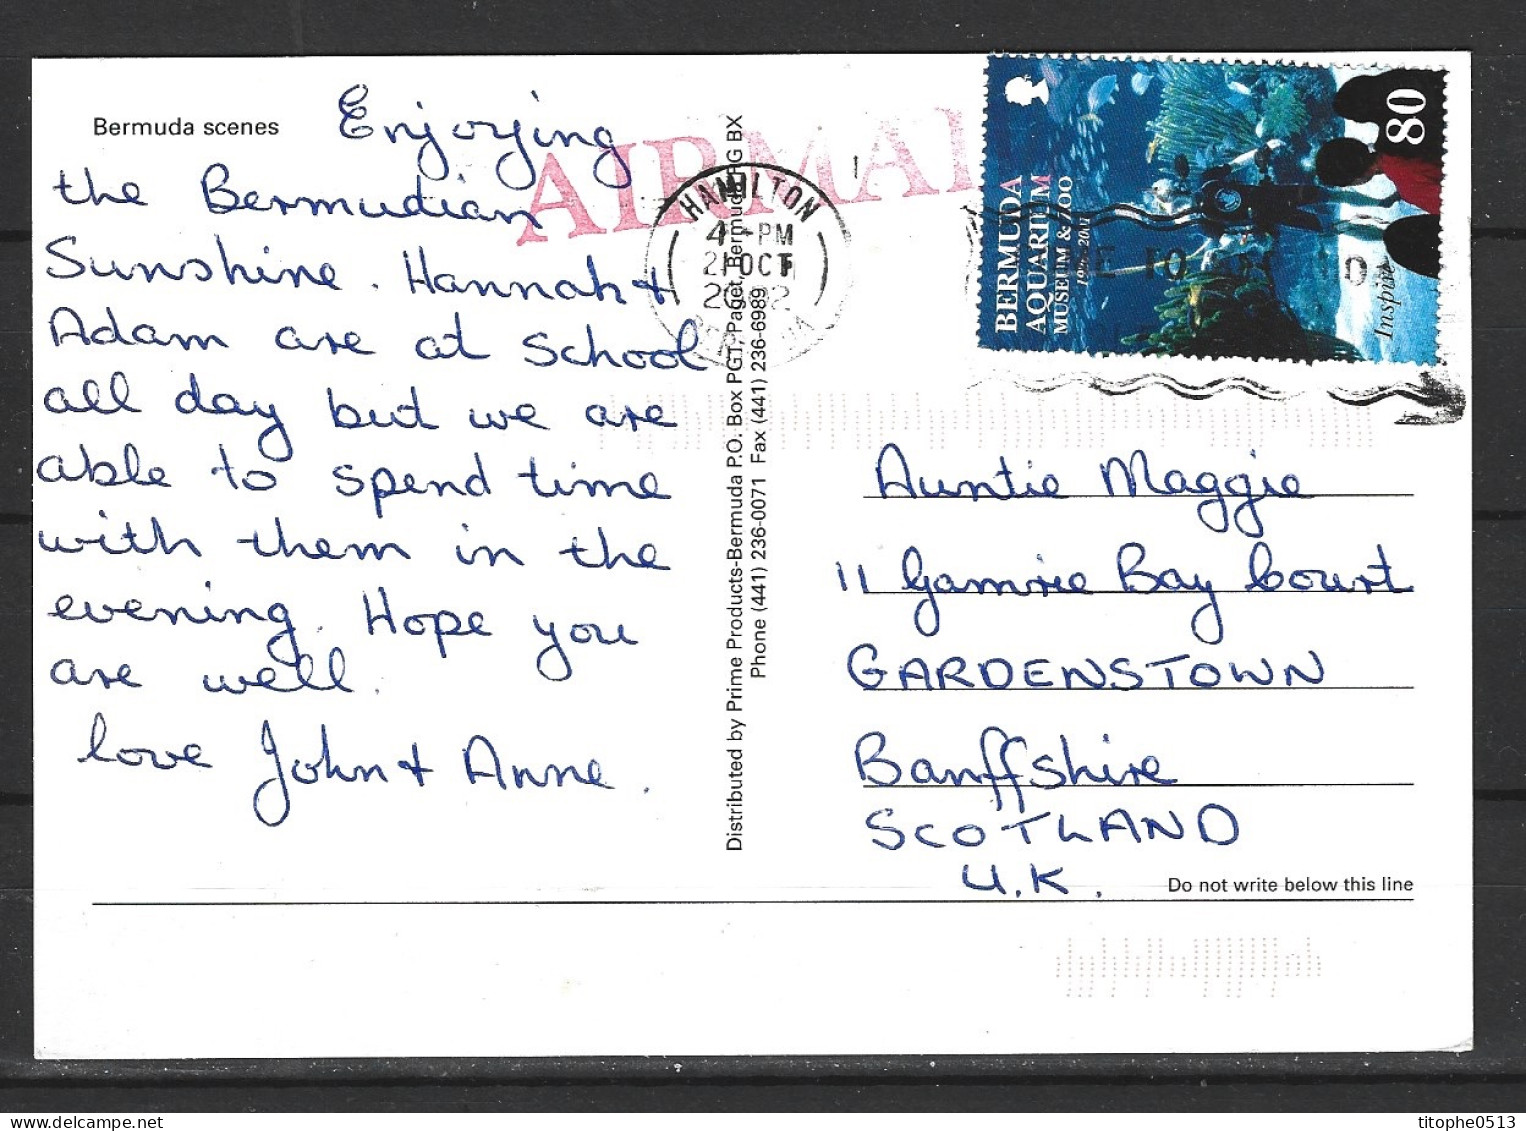 Bermuda scenes
Enjoying
the Bermudian
Sunshine. Hannah +
Adam are at School
all day but we are
able to spend time
with them in the
evening. Hope you
are well.
love John + Anne.
AIRMAI
HAMILTON
4 - PM
21 OCT
2002
BERMUDA AQUARIUM
MUSEUM & ZOO
80
Inspire
Distributed by Prime Products-Bermuda P.O. Box PG11, Paget, Bermuda PG BX
Phone (441) 236-0071 Fax (441) 236-6989
Auntie Maggie
11 Gamrie Bay Court
GARDENSTOWN
Banffshire
SCOTLAND
U.K.
Do not write below this line
titophe0513